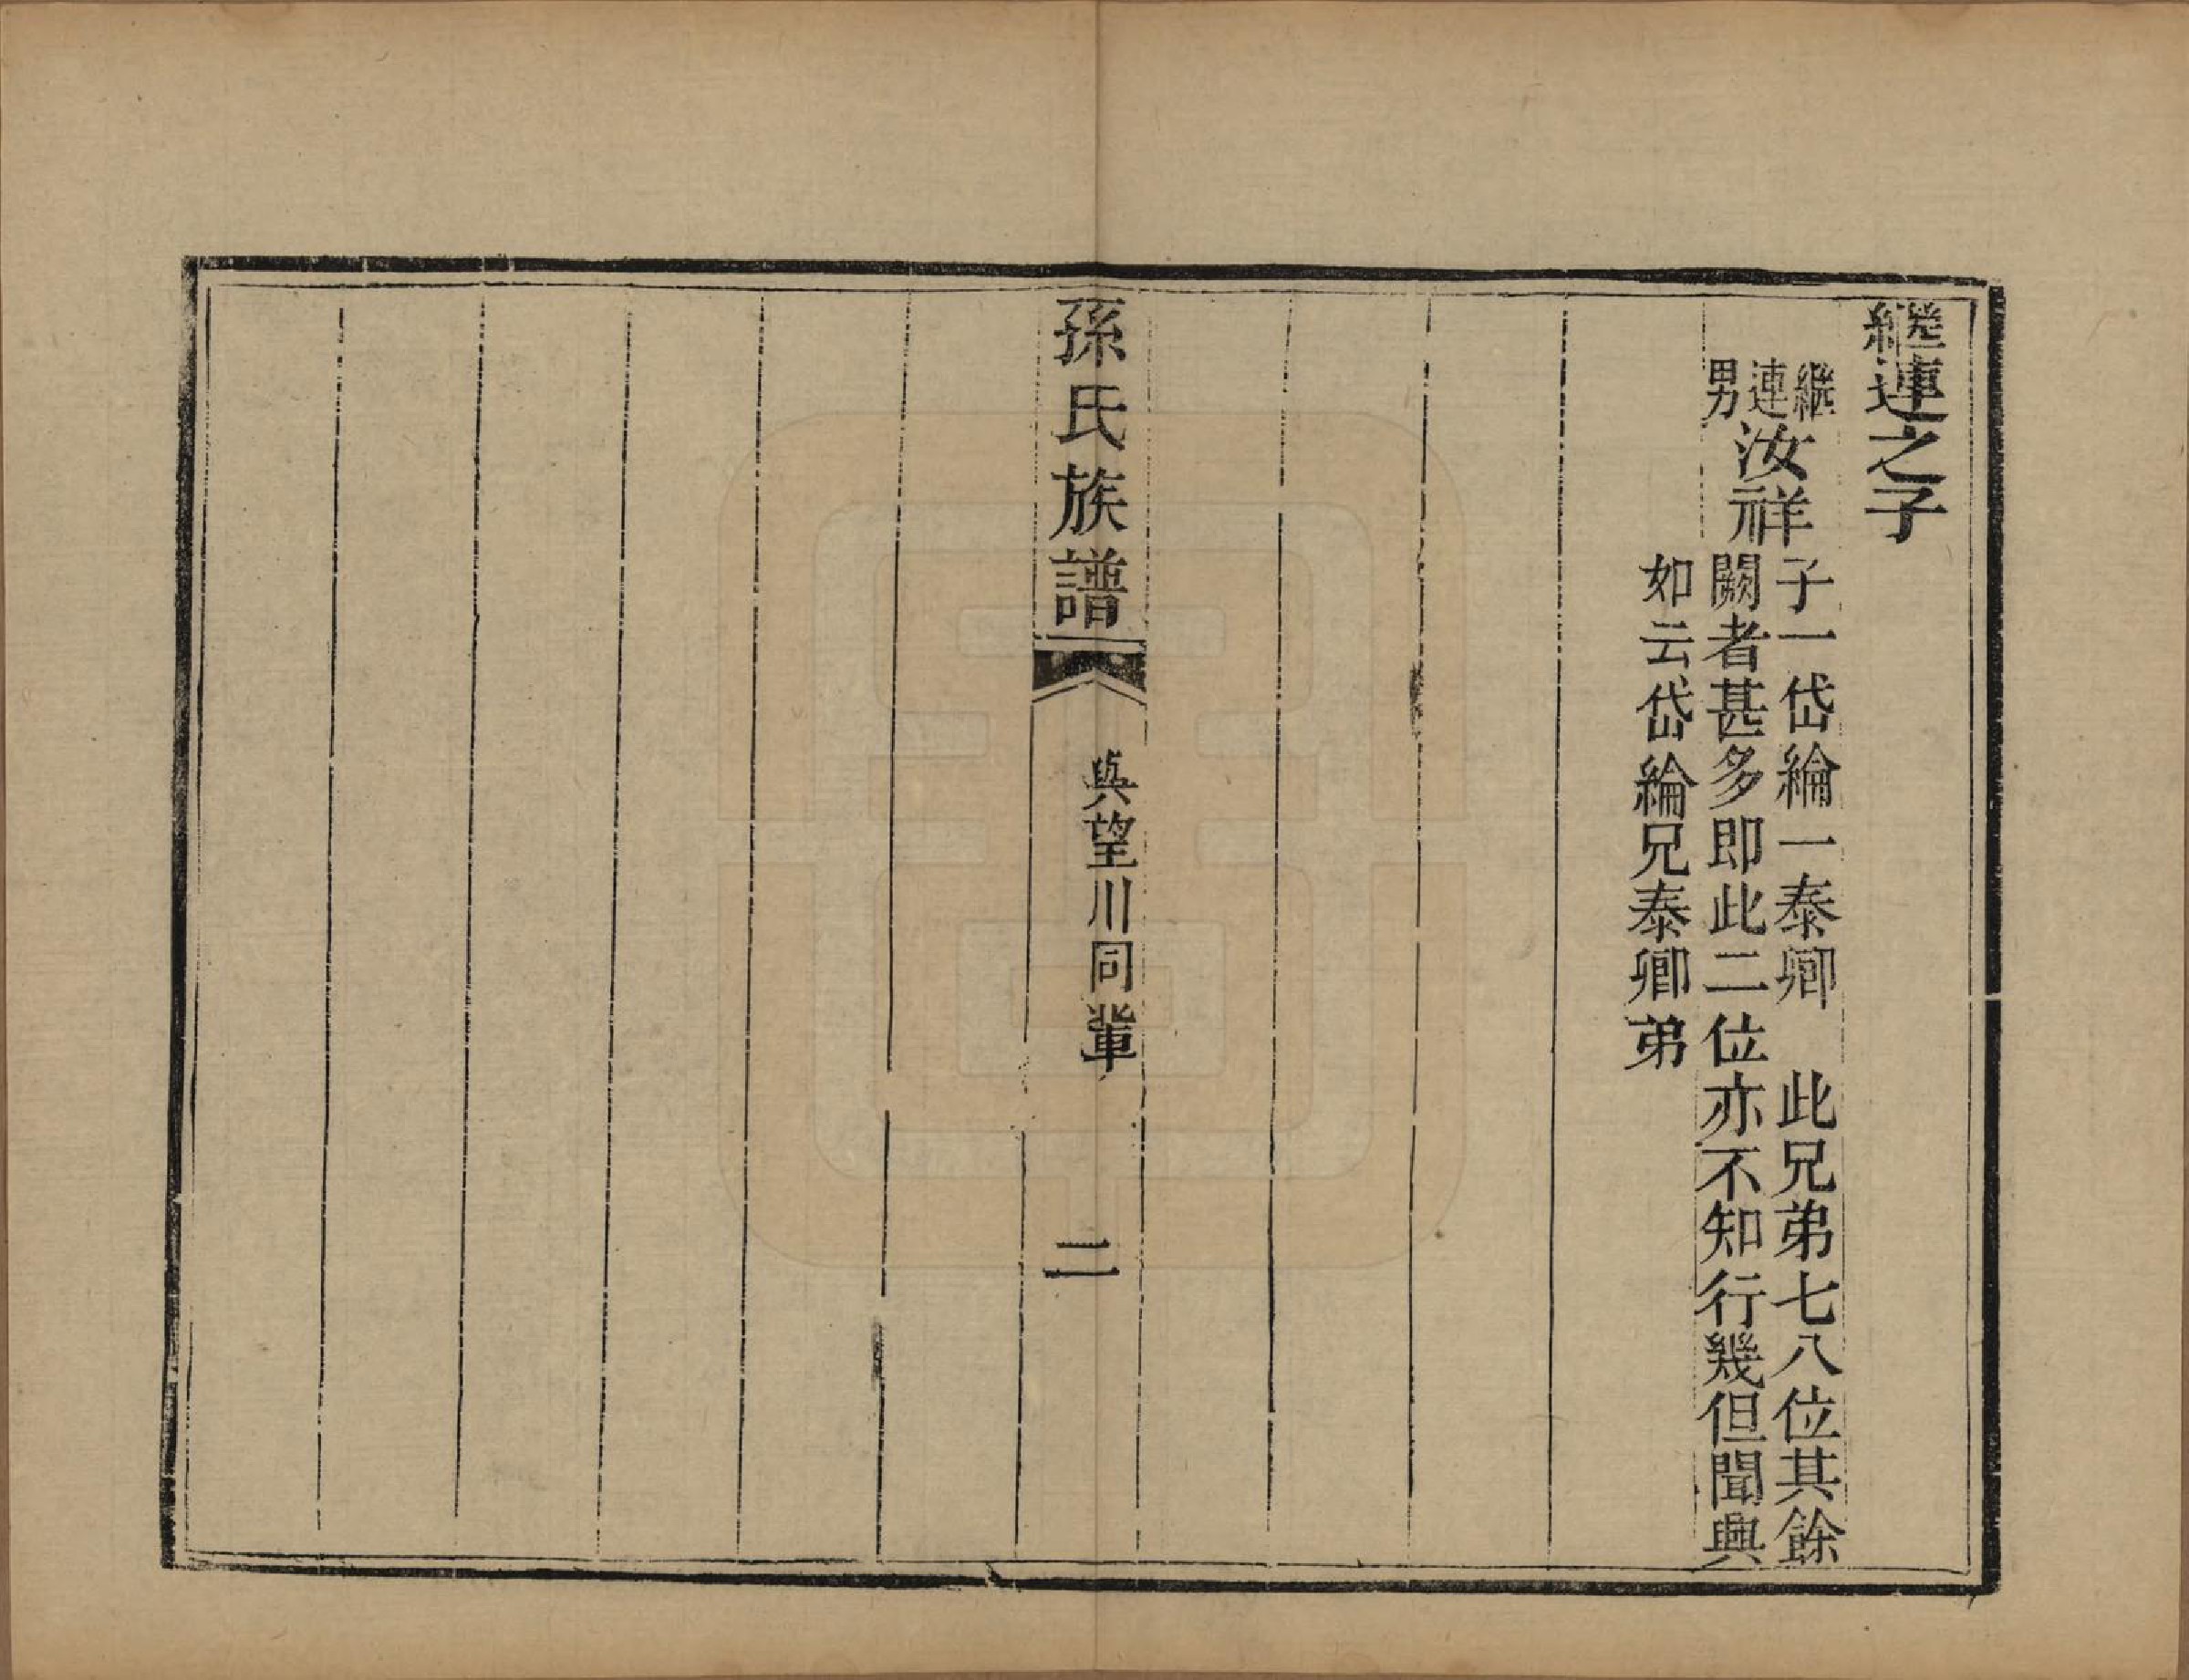 繼連之子
繼連男
汝祥
子一岱綸一泰卿　此兄弟七八位其餘
闕者甚多即此二位亦不知行幾但聞興
如云岱綸兄泰卿弟
孫氏族譜
與望川同輩
二